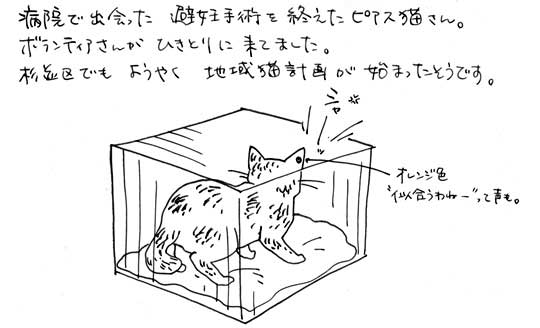 病院で出会った 避妊手術を終えたピアス猫さん。
ボランティアさんが ひきとりに来てました。
杉並区でも ようやく 地域猫計画が 始まったそうです。
シャ
オレンジ色
"似合うわねー"って声も。